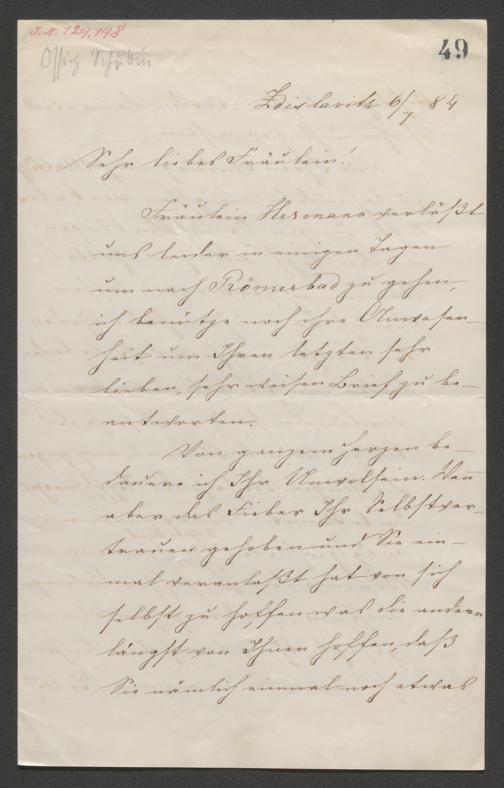 J.N. 129.198
49
Ossip Schubin
Zdislavitz 6/7 84
Sehr liebes Fräulein!
Fräulein Hermann verläßt
uns leider in einigen Tagen
um nach Römerbad zu gehen,
ich benütze noch ihre Anwesen-
heit um Ihren letzten sehr
lieben, sehr weisen Brief zu be-
antworten.
Von ganzem Herzen be-
dauere ich Ihr Unwolsein. Wenn
aber das Fieber Ihr Selbstver-
trauen gehoben und Sie ein-
mal veranlaßt hat von sich
selbst zu hoffen was die andern
längst von Ihnen hoffen, daß
Sie nämlich einmal noch etwas